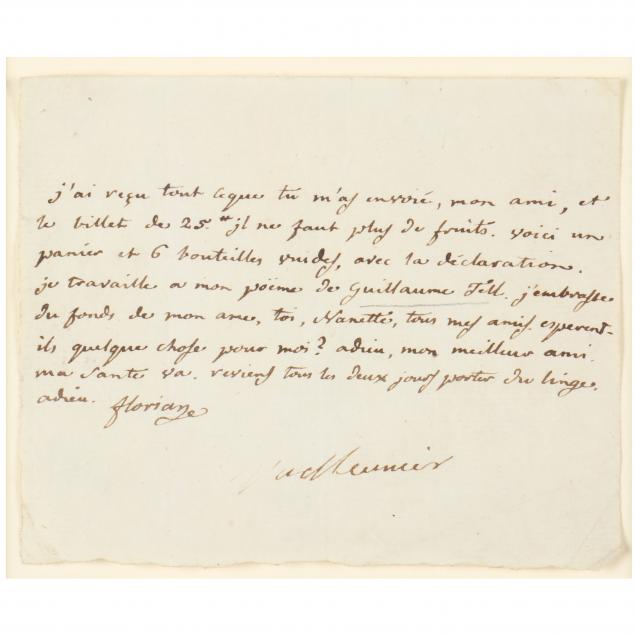 j'ai reçu tout ceque tu m'as envoié, mon ami, et
le billet de 25.# jl ne faut plus de fruits. voici un
panier et 6 bouteilles vuides, avec la déclaration.
je travaille a mon poëme de Guillaume Tell. j'embrasse
du fonds de mon ame, toi, Nanette, tous mes amis. esperent-
ils quelque chose pour moi? adieu, mon meilleur ami.
ma sante va. reviens tous les deux jours porter du linge.
adieu. florian